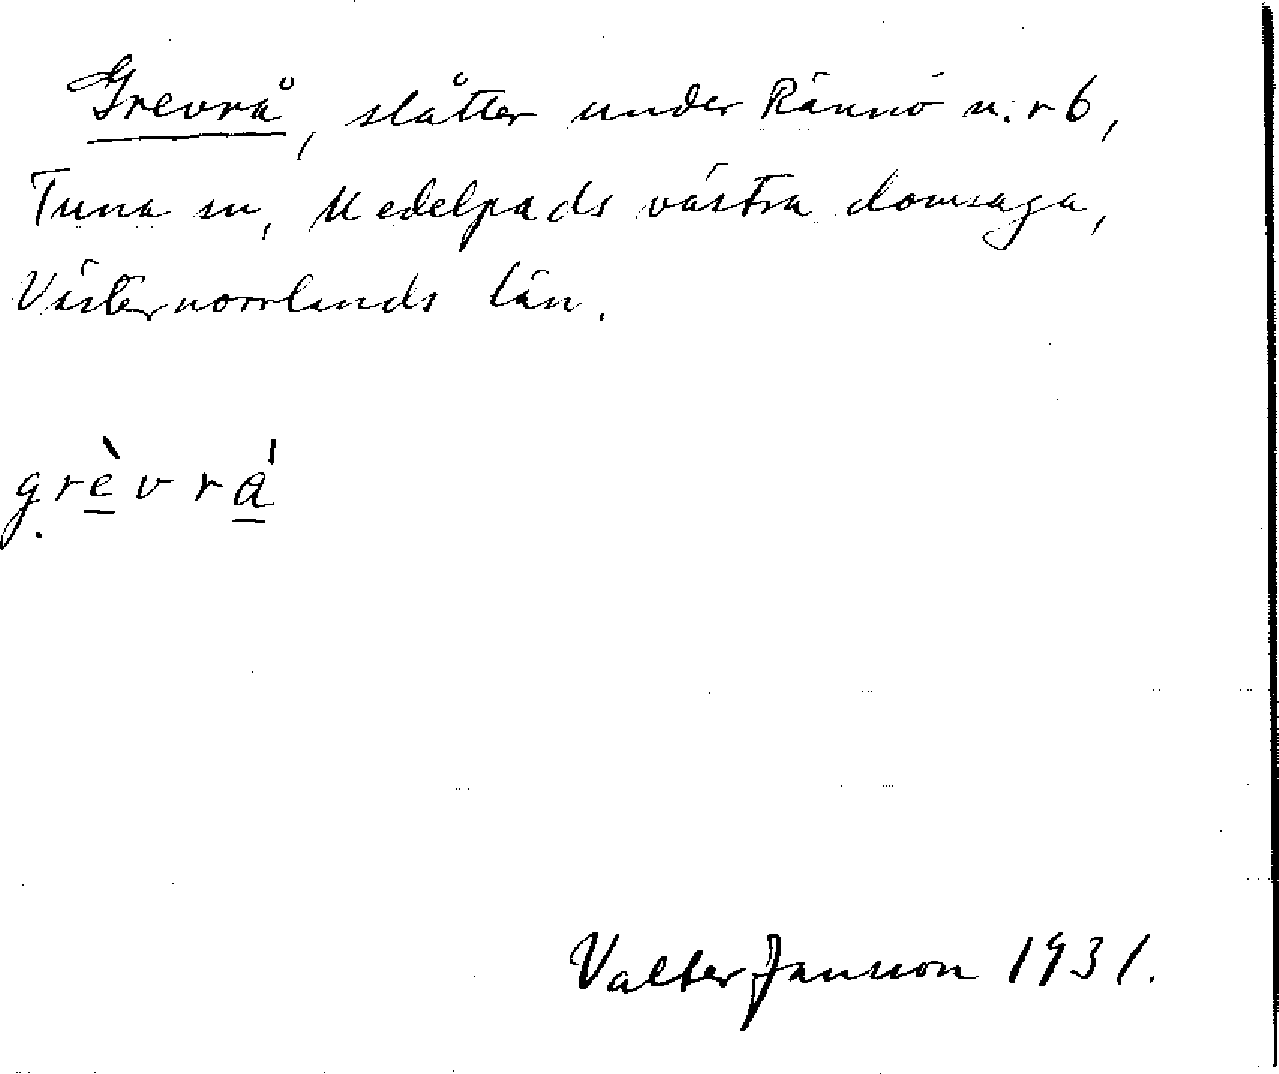 Grevrå, slåtter under Rännö n:r 6,
Tuna sn, Medelpads västra domsaga,
Västernorrlands län.
grèvrá
Valter Jansson 1931.